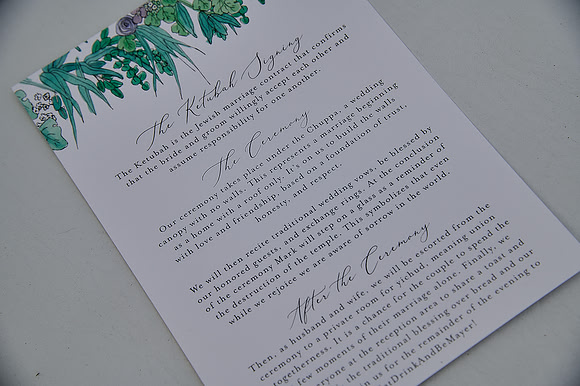 The Ketubah Signing
The Ketubah is the Jewish marriage contract that confirms
that the bride and groom willingly accept each other and
assume responsibility for one another.
The Ceremony
Our ceremony takes place under the Chuppa, a wedding
canopy with no walls. This represents a marriage beginning
as a home with a roof only. It's on us to build the walls
with love and friendship, based on a foundation of trust,
honesty, and respect.
We will then recite traditional wedding vows, be blessed by
our honored guests, and exchange rings. At the conclusion
of the ceremony Mark will step on a glass as a reminder of
the destruction of the temple. This symbolizes that even
while we rejoice we are aware of sorrow in the world.
After the Ceremony
Then, as husband and wife, we will be escorted from the
ceremony to a private room for yichud, meaning union
togetherness. It is a chance for the couple to spend the
few moments of their marriage alone. Finally, we
everyone at the reception area to share a toast and
the traditional blessing over bread and our
us for the remainder of the evening to
DrinkAndBeMayer!